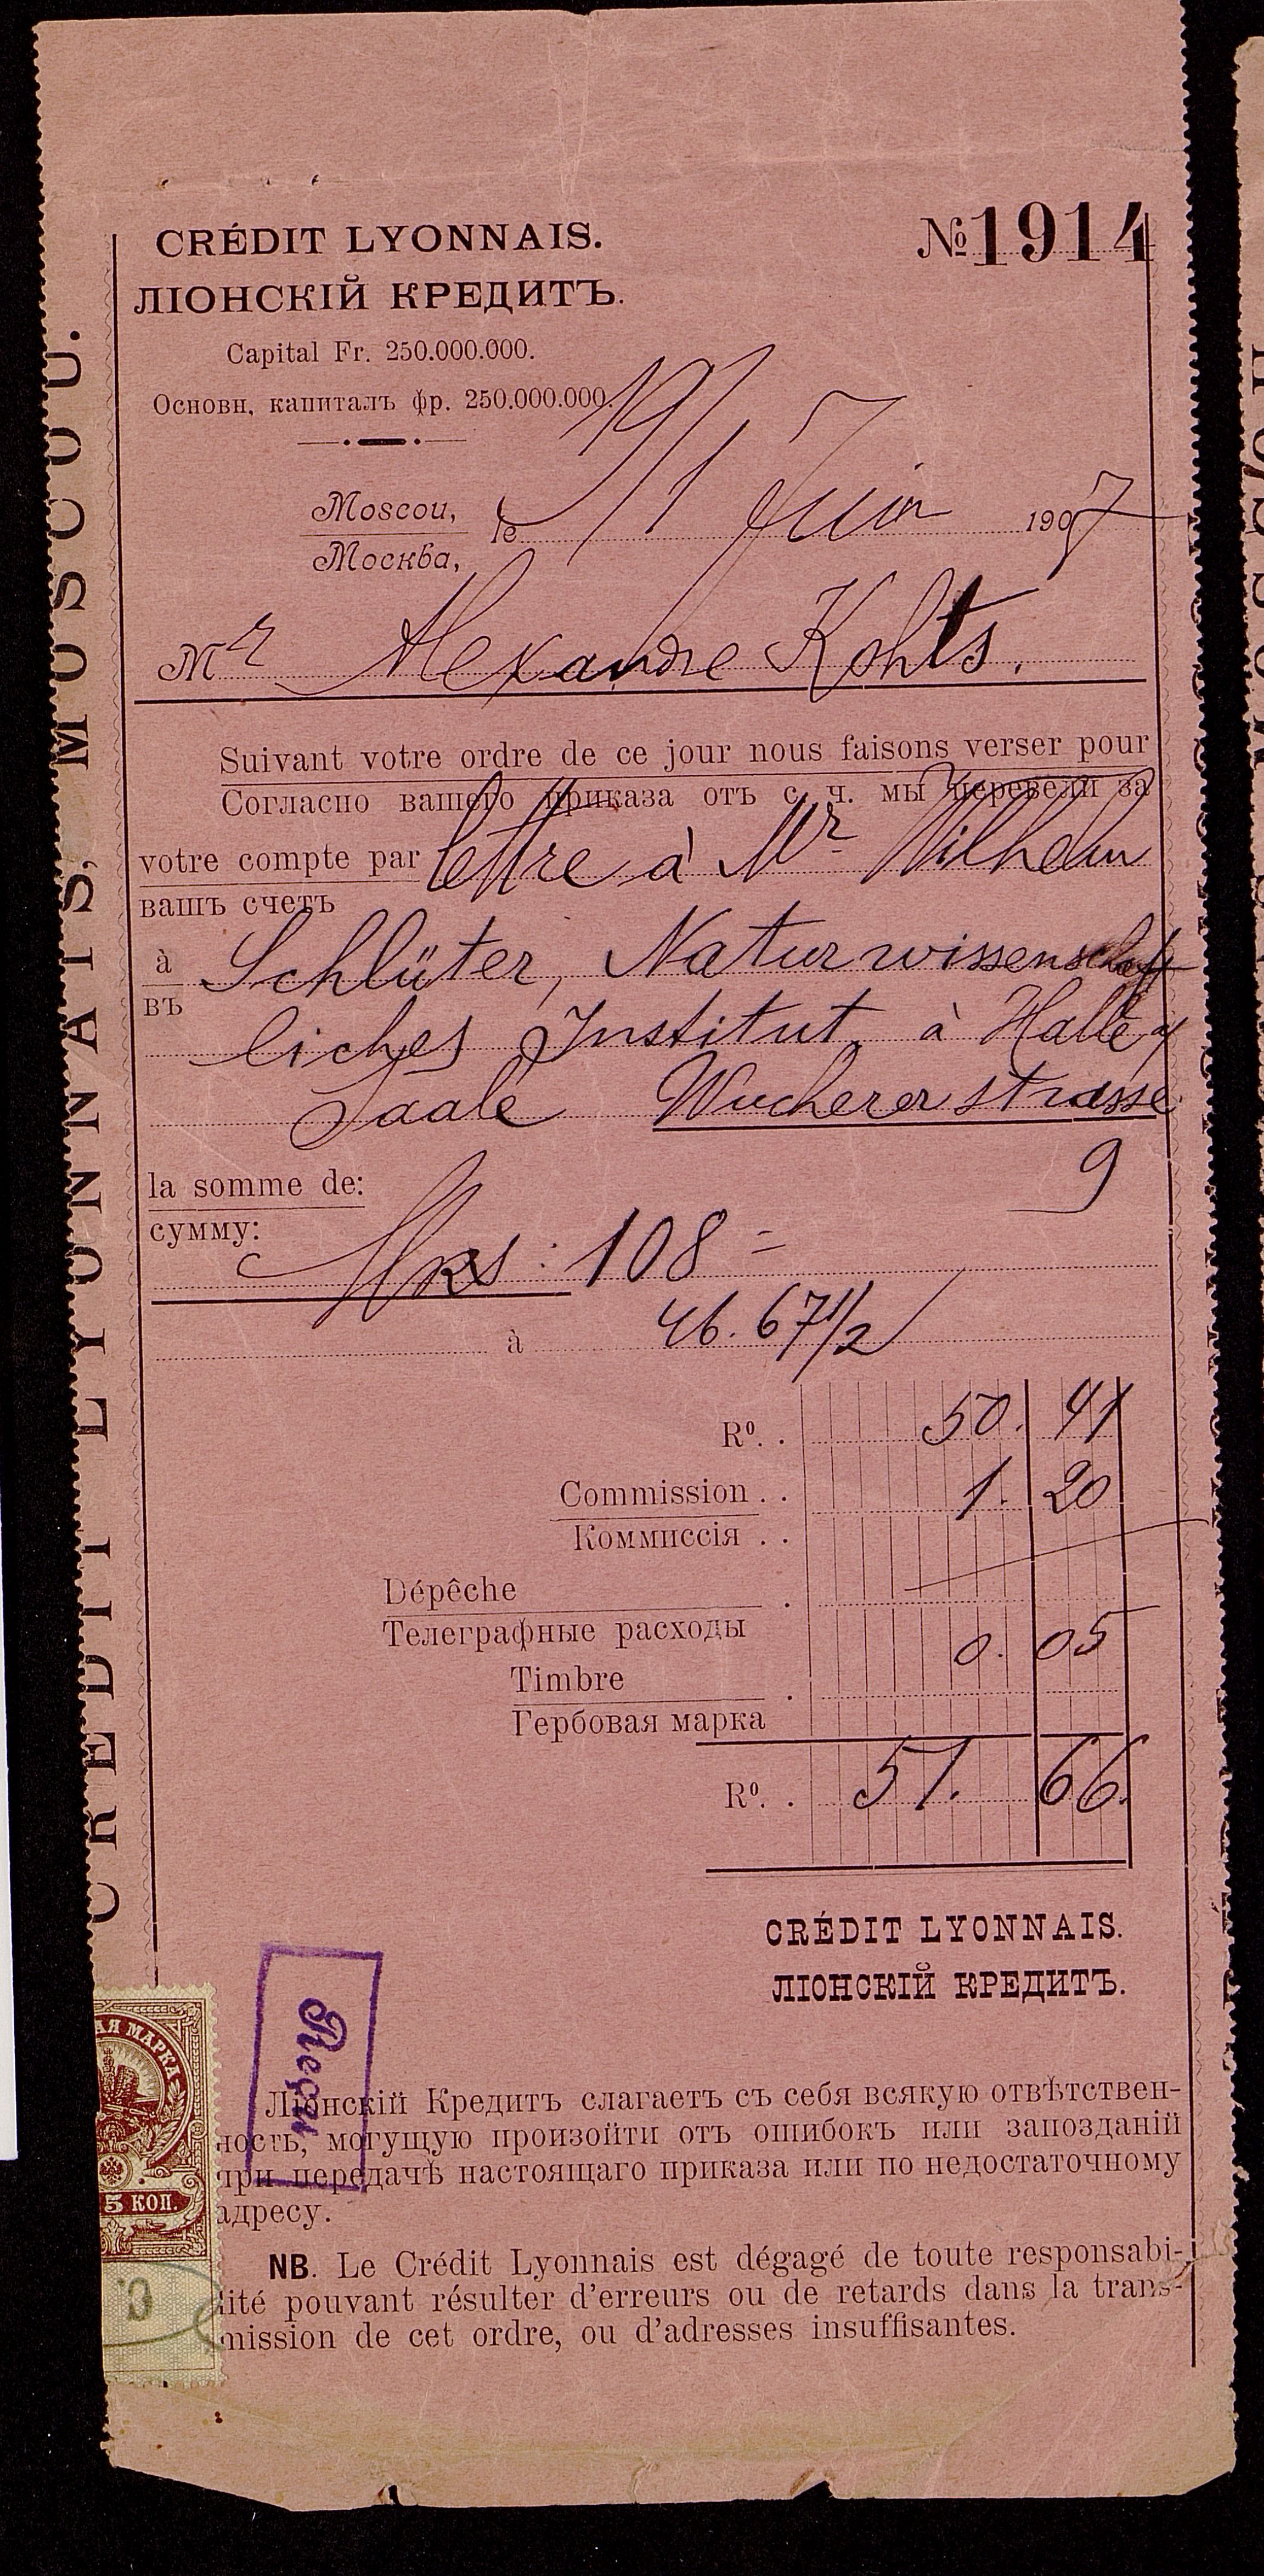 CRÉDIT LYONNAIS.
№ 1914
ЛІОНСКІЙ КРЕДИТЪ.
Capital Fr. 250.000.000.
Основн, капиталъ фр. 250.000.000.
Moscou,
Москва,
le 19/1 Juin 1907
Mr Alexandre Kohts.
Suivant votre ordre de ce jour nous faisons verser pour
Согласно вашего приказа отъ с. ч. мы перевели за
votre compte par lettre à Mr Wilhelm
вашъ счетъ
à Schlüter, Naturwissenschaft
въ
liches Institut, à Halle
Saale Wuchererstrasse
9
la somme de:
сумму:
Mks: 108 =
à 46.67 1/2
Rº. . 50. 41
Commission . . 1. 20
Коммиссія . .
Dépêche .
Телеграфные расходы
0. 05
Timbre .
Гербовая марка
Rº. . 51. 66.
CRÉDIT LYONNAIS.
ЛІОНСКІЙ КРЕДИТЪ.
Ліонскій Кредитъ слагаетъ съ себя всякую отвѣтствен-
ность, могущую произойти отъ ошибокъ или запозданій
при передачѣ настоящаго приказа или по недостаточному
адресу.
NB. Le Crédit Lyonnais est dégagé de toute responsabi-
lité pouvant résulter d'erreurs ou de retards dans la trans-
mission de cet ordre, ou d'adresses insuffisantes.
CREDIT LYONNAIS, MOSCOU.
АЯ МАРКА
5 КОП.